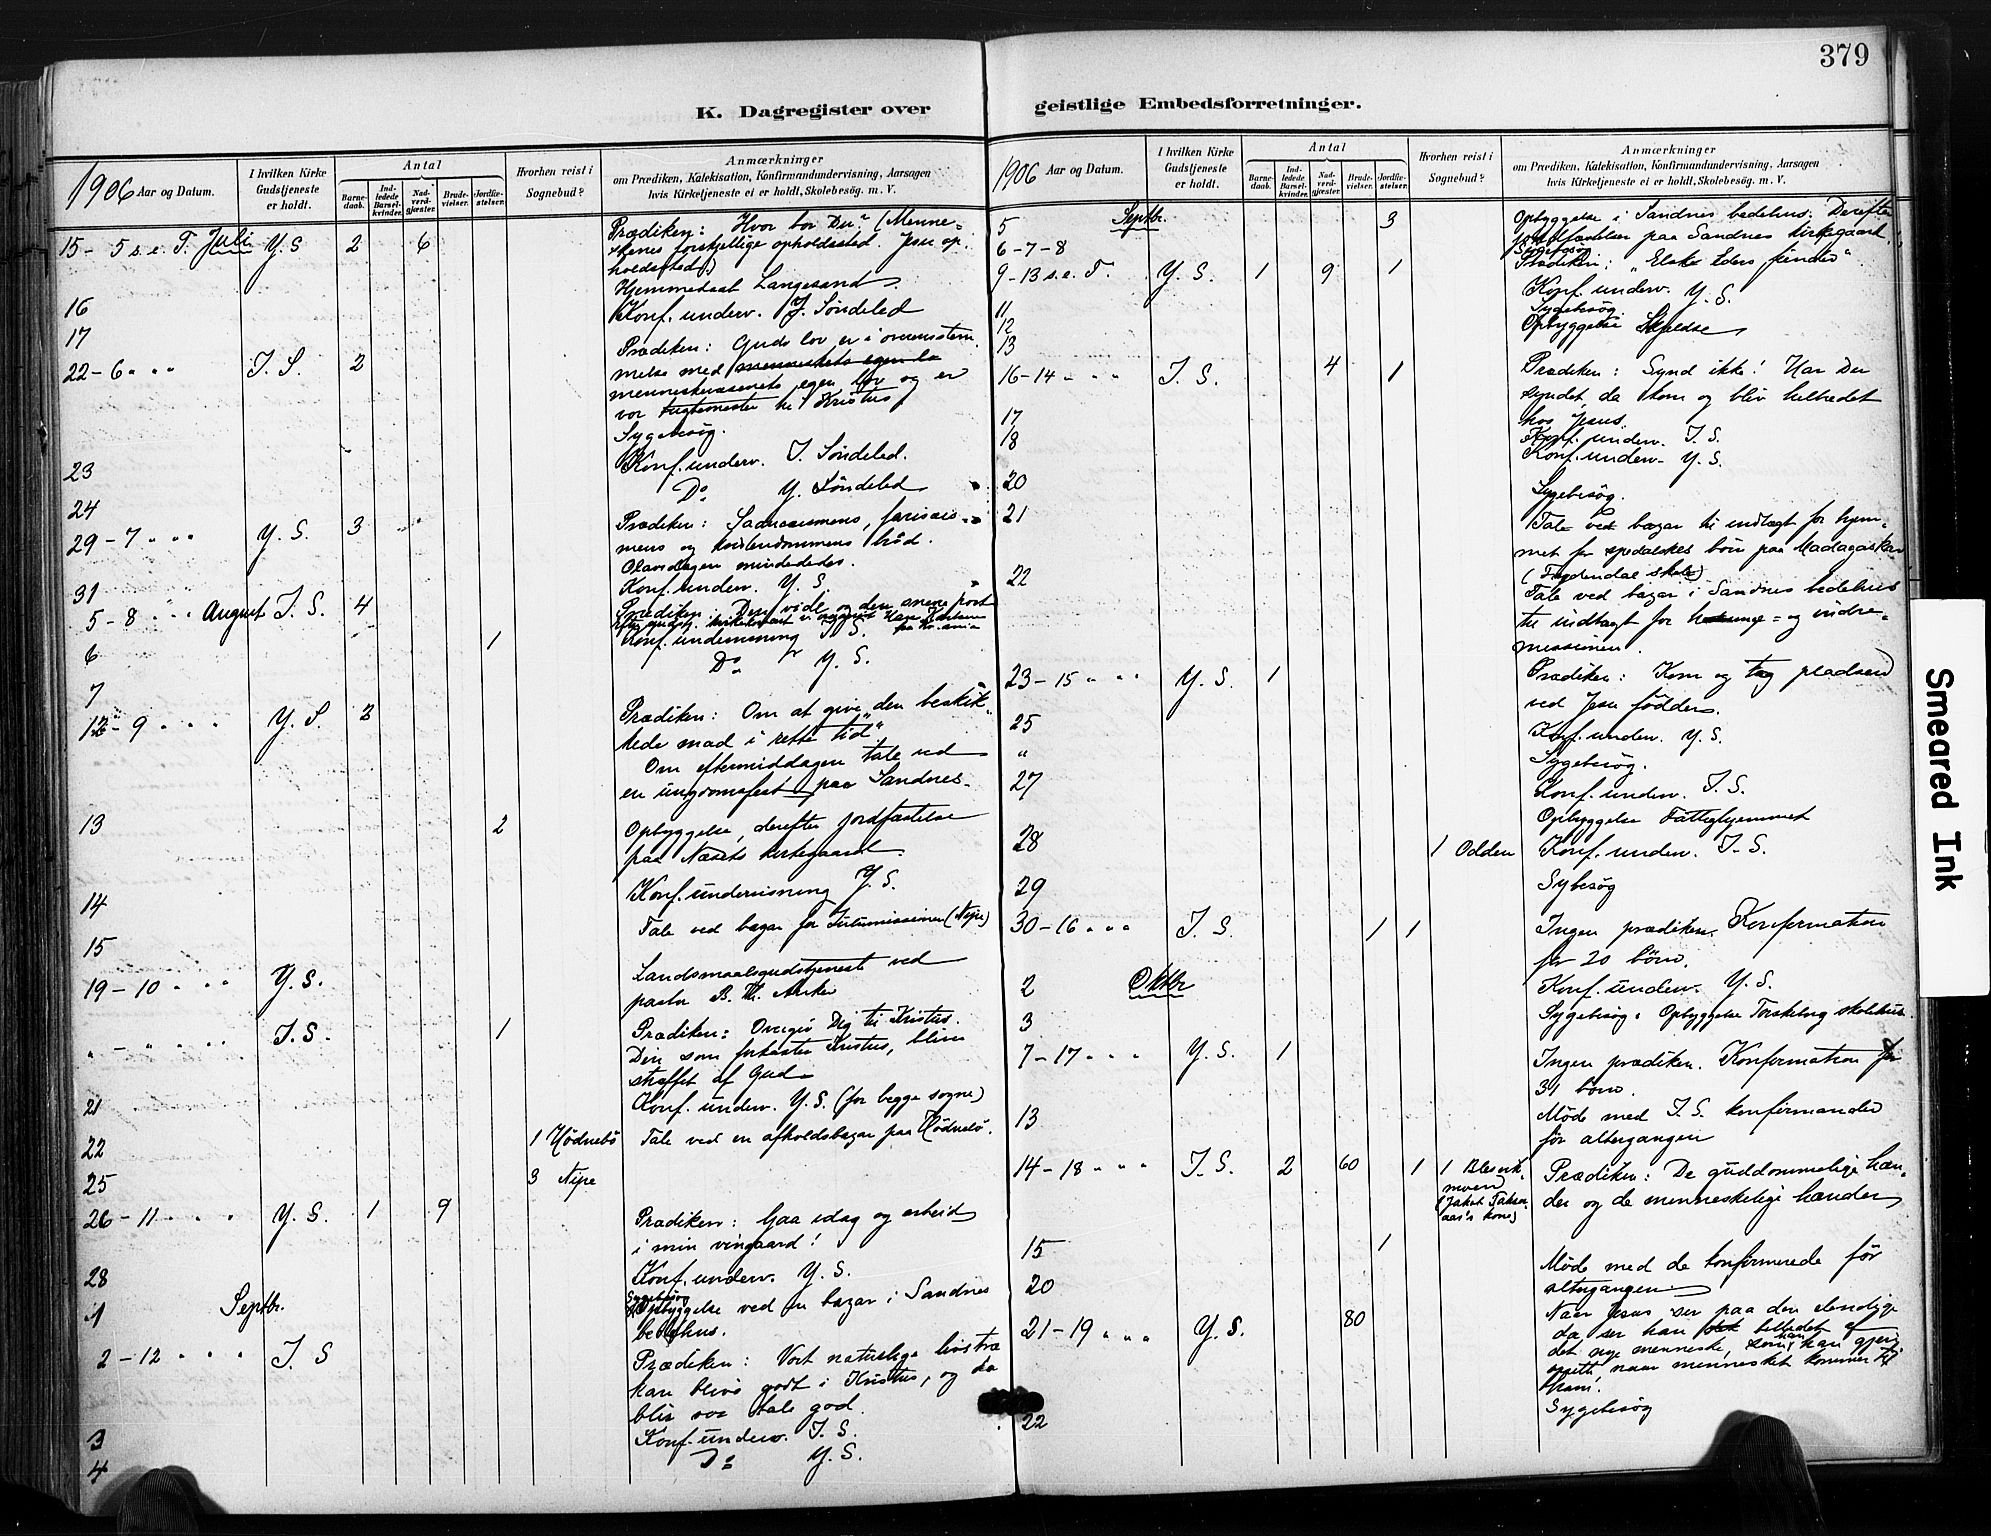 379
K. Dagregister over
geistlige Embedsforretninger.
1906 Aar og Datum.
I hvilken Kirke Gudstjeneste er holdt.
Antal
Barnedaab.
Indledede Barselkvinder.
Nadverdgjæster.
Brudevielser.
Jordfæstelser.
Hvorhen reist i Sognebud?
Anmærkninger
om Prædiken, Katekisation, Konfirmandundervisning, Aarsagen
hvis Kirketjeneste ei er holdt, Skolebesög. m. V.
15 - 5 s. e. T. Juli Y. S 2 6 Prædiken: Hvor bor Du? (Menne-
skenes forskjellige opholdssted. Jesu op-
holdssted.)
16 Hjemmedaab Langesand
17 Konf. underv. Y. Söndeled
22 - 6 " " I. S. 2 Prædiken: Guds lov er i overensstem
melse med menneskets egen lo
menneskevæsenets egen lov og er
vor tugtemester til Kristus
Sygebesög.
23 Konf. underv. I. Söndeled.
24 Do Y. Söndeled
29 - 7 " " " Y. S. 3 Prædiken: Saducæismens, farisæis-
mens og kristendommens bröd.
Olavsdagen mindedes.
31 Konf. underv. Y. S.
5 - 8 " " August I. S. 4 Prædiken: Den vide og den snevre port
6 1 Konf. undervisning I. S.
7 Do Y. S.
12 - 9 " " " Y. S 2 Prædiken: Om at give "den beskik-
kede mad i rette tid".
Om eftermiddagen tale ved
en ungdomsfest paa Sandnes.
13 2 Opbyggelse, derefter jordfæstelse
paa Næsets kirkegaard.
14 Konf. undervisning Y. S.
15 Tale ved bazar for Indremissionen (Nipe)
19 - 10 " " " Y. S. Landsmaalsgudstjeneste ved
pastor
" - " " " " I. S. 1 Prædiken: Overgiv Dig til Kristus.
Den som forkaster Kristus, bliver
straffet af Gud
21 Konf. underv. Y. S. (for begge sogne)
22 1 Hödnebö Tale ved en afholdsbazar paa Hödnebö.
25 3 Nipe
26 - 11 " " " Y. S. 1 9 Prædiken: Gaa idag og arbeid
i min vingaard!
28 Konf. underv. Y. S.
Sygebesög
1 Septbr. Opbyggelse ved en bazar i Sandnes
bedehus.
2 - 12 " " " I. S Prædiken: Vort naturlige livstræ
kan blive godt i Kristus, og da
blir vor tale god.
3 Konf. underv. I. S.
4 Do Y. S.
1906 Aar og Datum.
I hvilken Kirke Gudstjeneste er holdt.
Antal
Barnedaab.
Indledede Barselkvinder.
Nadverdgjæster.
Brudevielser.
Jordfæstelser.
Hvorhen reist i Sognebud?
Anmærkninger
om Prædiken, Katekisation, Konfirmandundervisning, Aarsagen
hvis Kirketjeneste ei er holdt, Skolebesög. m. V.
5 Septbr. 3 Opbyggelse i Sandnes bedehus. Derefter
jordfæstelser paa Sandnes kirkegaard.
6 - 7 - 8 Sygebesög
9 - 13 s. e. T. Y. S. 1 9 1 Prædiken: "Elsker Eders fiender"
11 Konf. underv. Y. S.
12 Sygebesög.
13 Opbyggelse
16 - 14 " " " I. S. 4 1 Prædiken: Synd ikke! Har Du
syndet, da kom og bliv helbredet
hos Jesus.
17 Konf. underv. I. S.
18 Konf. underv. Y. S.
20 Sygebesög.
21 Tale ved bazar til indtægt for hjem-
met for spedalskes börn paa Madagaskar
(Frydendal skole)
22 Tale ved bazar i Sandnes bedehus
til indtægt for hedninge- og indre-
missionen.
23 - 15 " " " Y. S. 1 Prædiken: Kom og tag pladsen
ved Jesu födder.
25 Konf. underv. Y. S.
" Sygebesög.
27 Konf. underv. I. S.
Opbyggelse Fattighjemmet
28 1 Odden Konf. underv. I. S.
29 Sybesög
30 - 16 " " " I. S. 1 1 Ingen prædiken. Konfirmation
for 20 börn.
2 Oktbr Konf. underv. Y. S.
3 Sygebesög. Opbyggelse Torskeberg skolehus.
7 - 17 " " " Y. S. 1 Ingen prædiken. Konfirmation for
31 börn.
13 Möde med I. S. konfirmander
för altergangen
14 - 18 " " " I. S. 2 60 1 1 Prædiken: De guddommelige hæn-
der og de menneskelige hænder
15 1
20 Möde med de konfirmerede för
altergangen
21 - 19 " " " Y. S. 80 Naar Jesus ser paa den elendige
da ser han helbredet
det nye menneske, som han kan gjøre
naar mennesket kommer til
ham.
22 Sygebesög
Smeared Ink